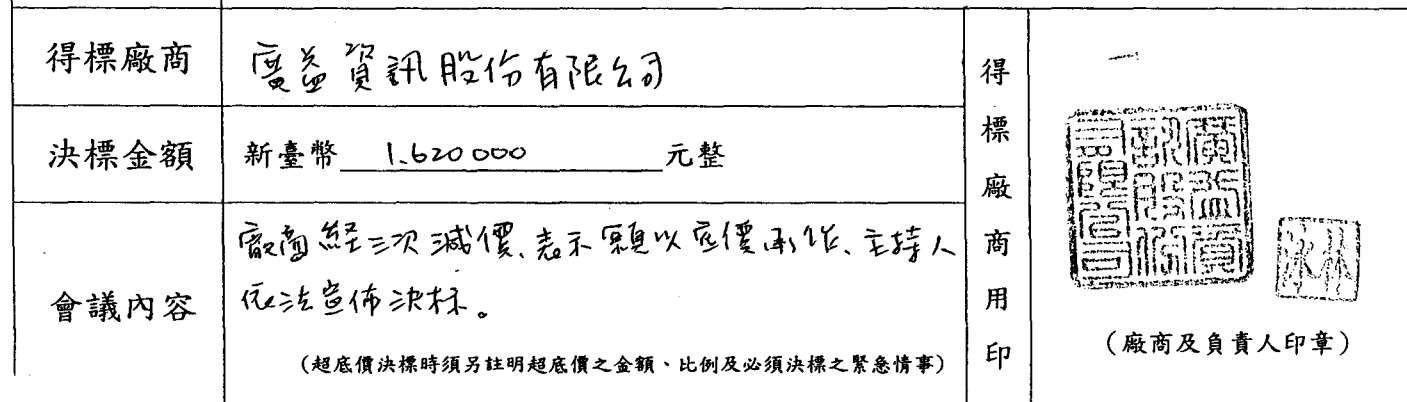 得標廠商
廣益資訊股份有限公司
決標金額
新臺幣 1.620000 元整
會議內容
廠商經三次減價、表示願以底價承作、主持人
依法宣佈決标。
(超底價決標時須另註明超底價之金額、比例及必須決標之緊急情事)
得標廠商用印
廣益資
訊股份
有限公司
(廠商及負責人印章)